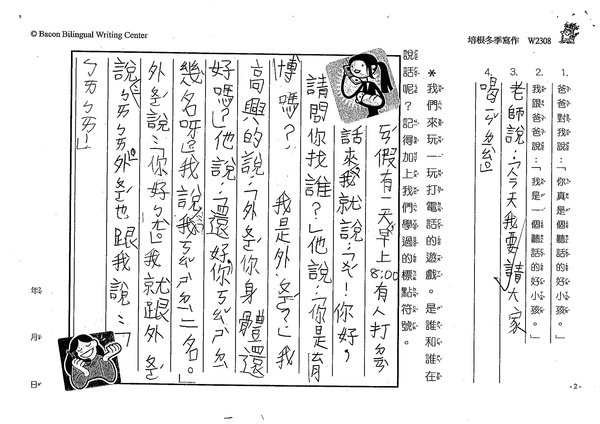 © Bacon Bilingual Writing Center
培根冬季寫作 W2308
1. 爸爸對我說:「你真是個聽話的好小孩。」
2. 我跟爸爸說:「我是一個聽話的好小孩。」
3. 老師說:「今天我要請大家
4. 喝ㄋㄞˇㄔㄚˊ
*我們來玩一玩打電話的遊戲。是誰和誰在
說話呢?記得加上我們學過的標點符號。
假有一天早上8:00有人打ㄉㄧㄢˋ
話來我就說:「ㄟˊ!你好,
請問你找誰?」他說:「你是育
博嗎?我是外ㄆㄛˊ?」我
高興的說:「外ㄆㄛˊ你身體還
好嗎?」他說:「還好你ㄎㄠˇㄕˋㄉㄧˋ
幾名呀」我說我ㄎㄠˇㄕˋㄉㄧˋ一名。」
外ㄆㄛˊ說:「你好ㄅㄤˋ我就跟外ㄆㄛˊ
說ㄅㄞㄅㄞ外ㄆㄛˊ也跟我說:「
ㄅㄞㄅㄞ」
年 月 日
-2-